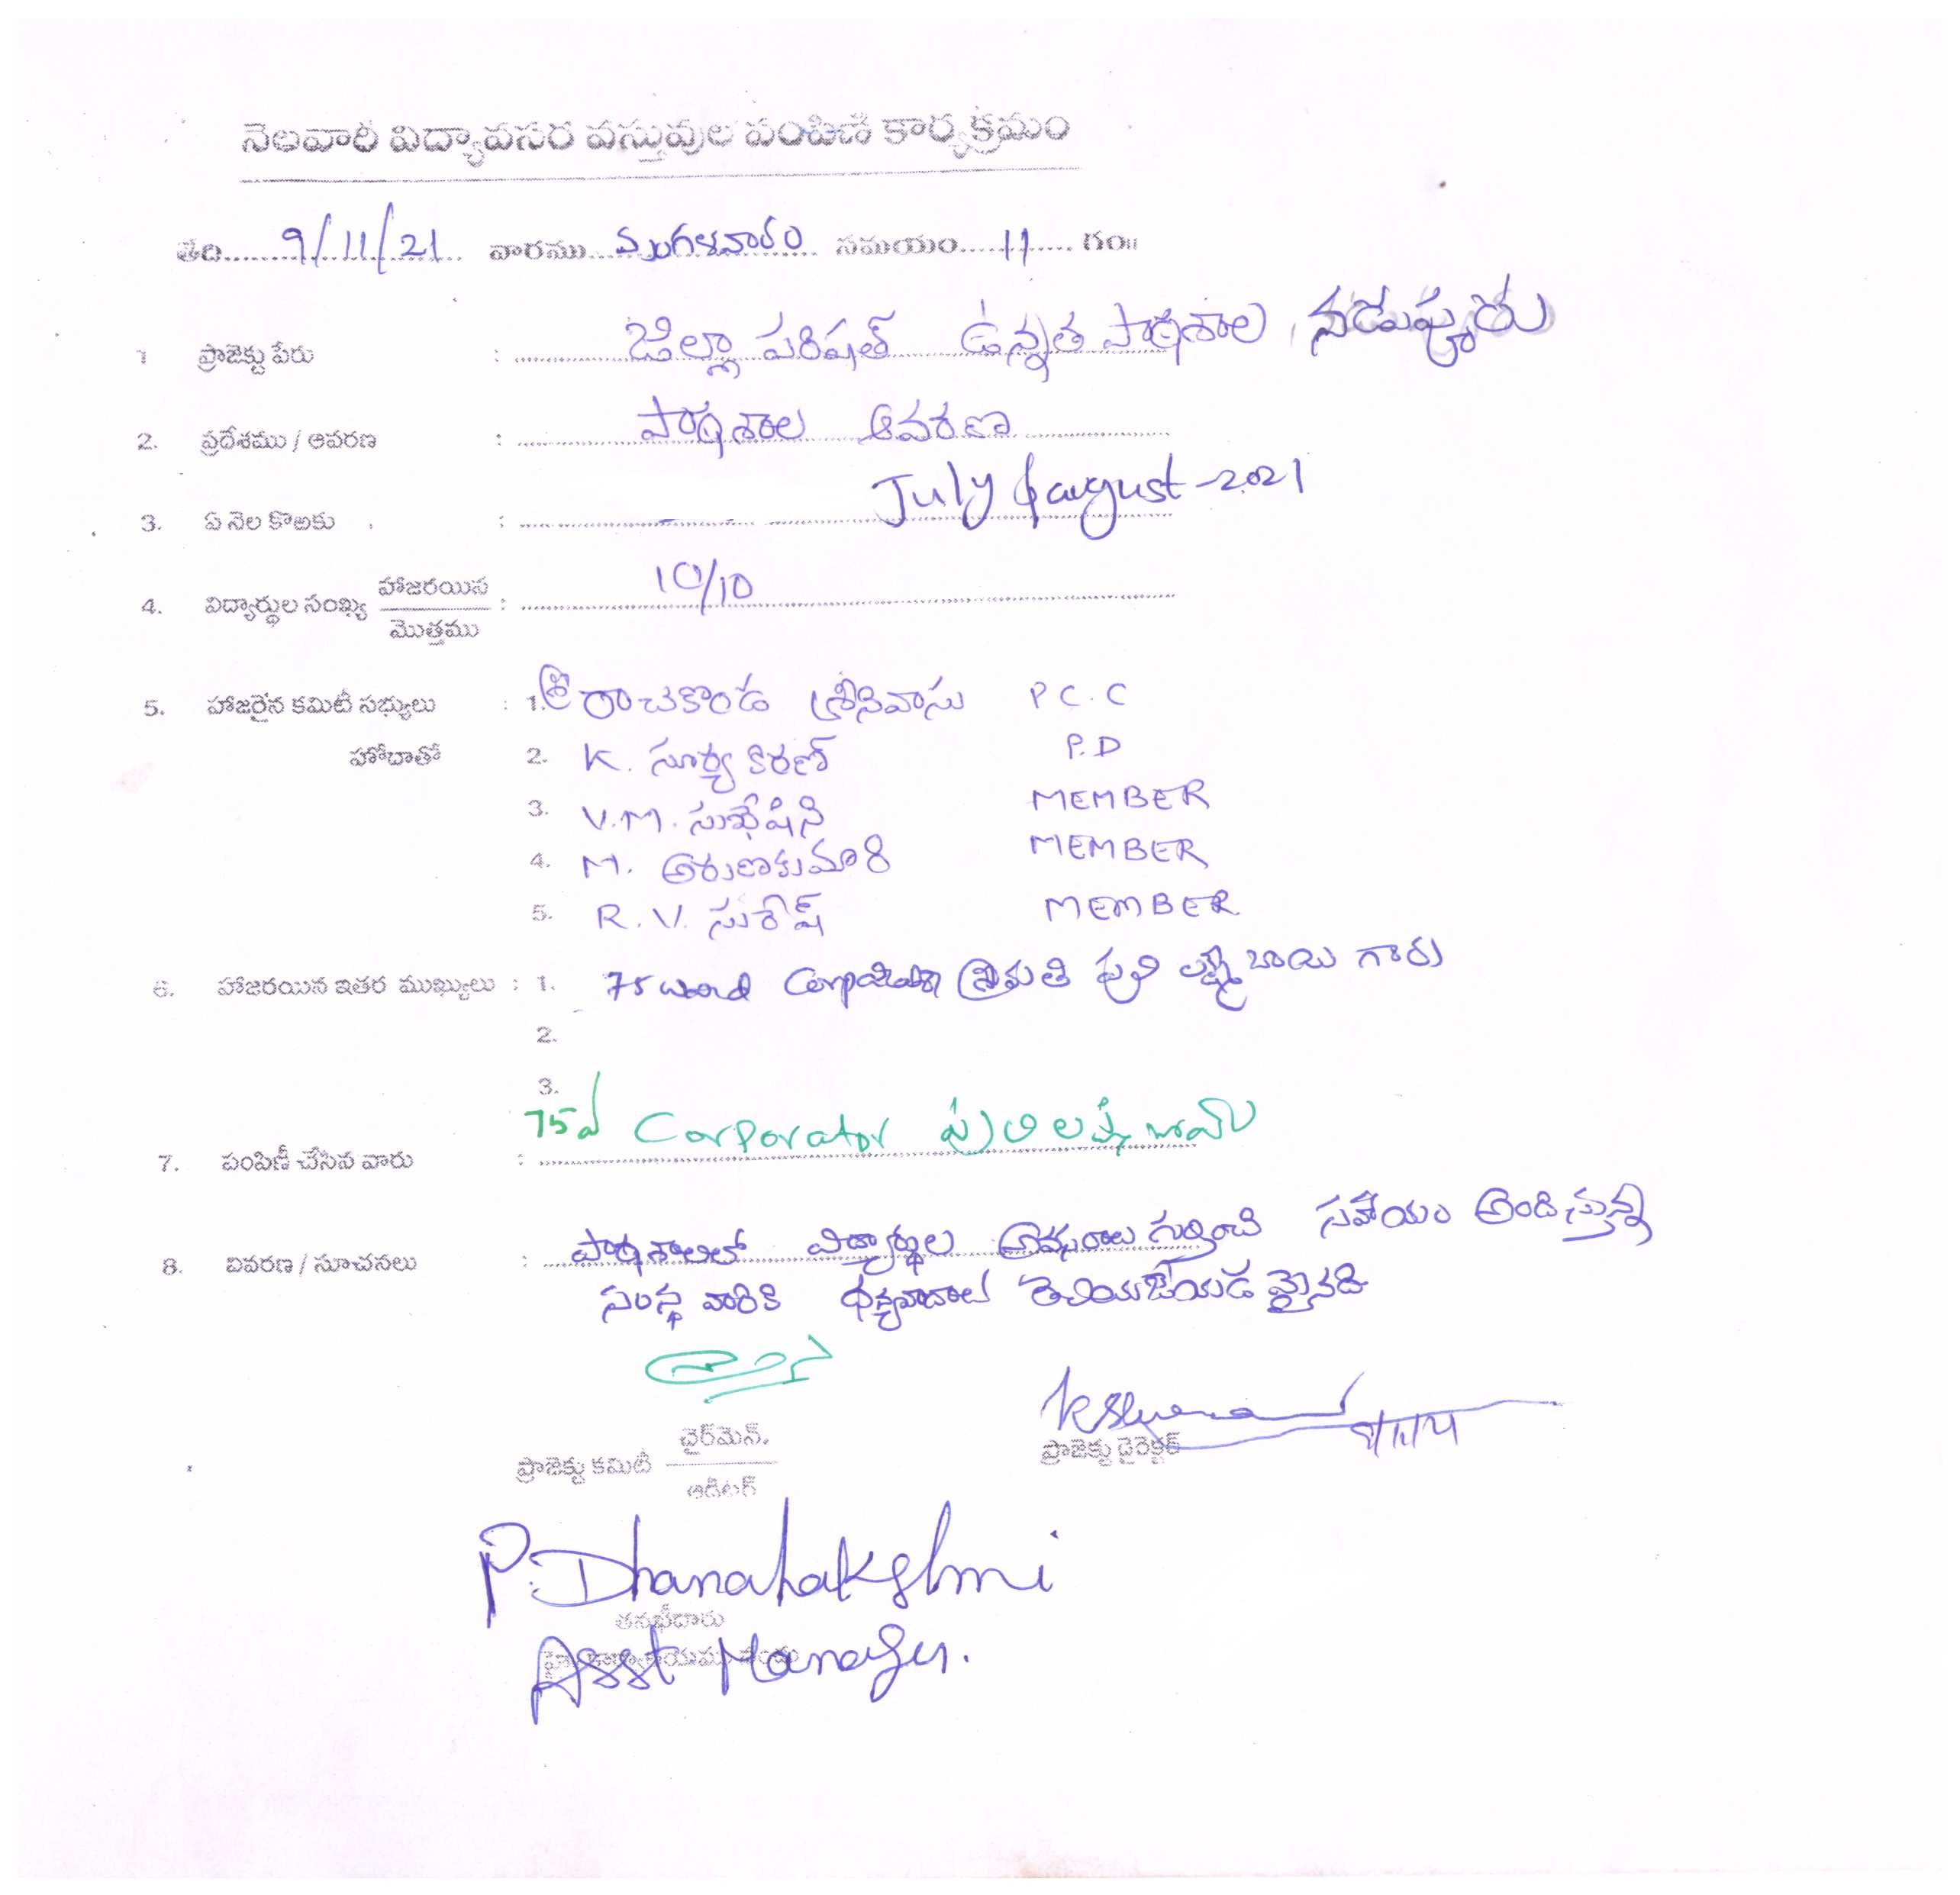 నెలవారీ విద్యావసర వస్తువుల పంపిణీ కార్యక్రమం
తేది 9/11/21 వారము మంగళవారం సమయం 11 గం॥
1 ప్రాజెక్టు పేరు : జిల్లా పరిషత్ ఉన్నత పాఠశాల, నడుపూరు
2. ప్రదేశము / ఆవరణ : పాఠశాల ఆవరణ
3. ఏ నెల కొఱకు : July & august-2021
4. విద్యార్థుల సంఖ్య హాజరయిన : 10/10
మొత్తము
5. హాజరైన కమిటీ సభ్యులు : 1. శ్రీ రాచకొండ శ్రీనివాసు P C.C
హోదాతో 2. K. సూర్య కిరణ్ P.D
3. V.M. సుభేషిని MEMBER
4. M. అరుణకుమారి MEMBER
5. R.V. సురేష్ MEMBER
6. హాజరయిన ఇతర ముఖ్యులు : 1. 75 ward శ్రీమతి లక్ష్మీ బాయి గారు
2.
3.
75వ Corporator లక్ష్మీ బాయ్
7. పంపిణీ చేసిన వారు :
8. వివరణ / సూచనలు : పాఠశాలలో విద్యార్థుల అవసరాలు గుర్తించి సహాయం అందిస్తున్న
సంస్థ వారికి ధన్యవాదాలు తెలియజేయడమైనది
చైర్‌మెన్.
ప్రాజెక్టు కమిటీ
ఆడిటర్
ప్రాజెక్టు డైరెక్టర్ 9/11/21
P. Dhanalakshmi
తనఖీదారు
Asst Manager.